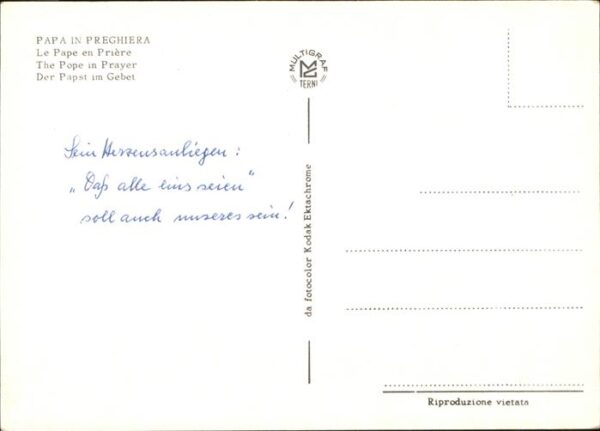 PAPA IN PREGHIERA
Le Pape en Prière
The Pope in Prayer
Der Papst im Gebet
MULTIGRAF
TERNI
Sein Herzensanliegen:
„Daß alle eins seien"
soll auch unseres sein!
da fotocolor Kodak Ektachrome
Riproduzione vietata